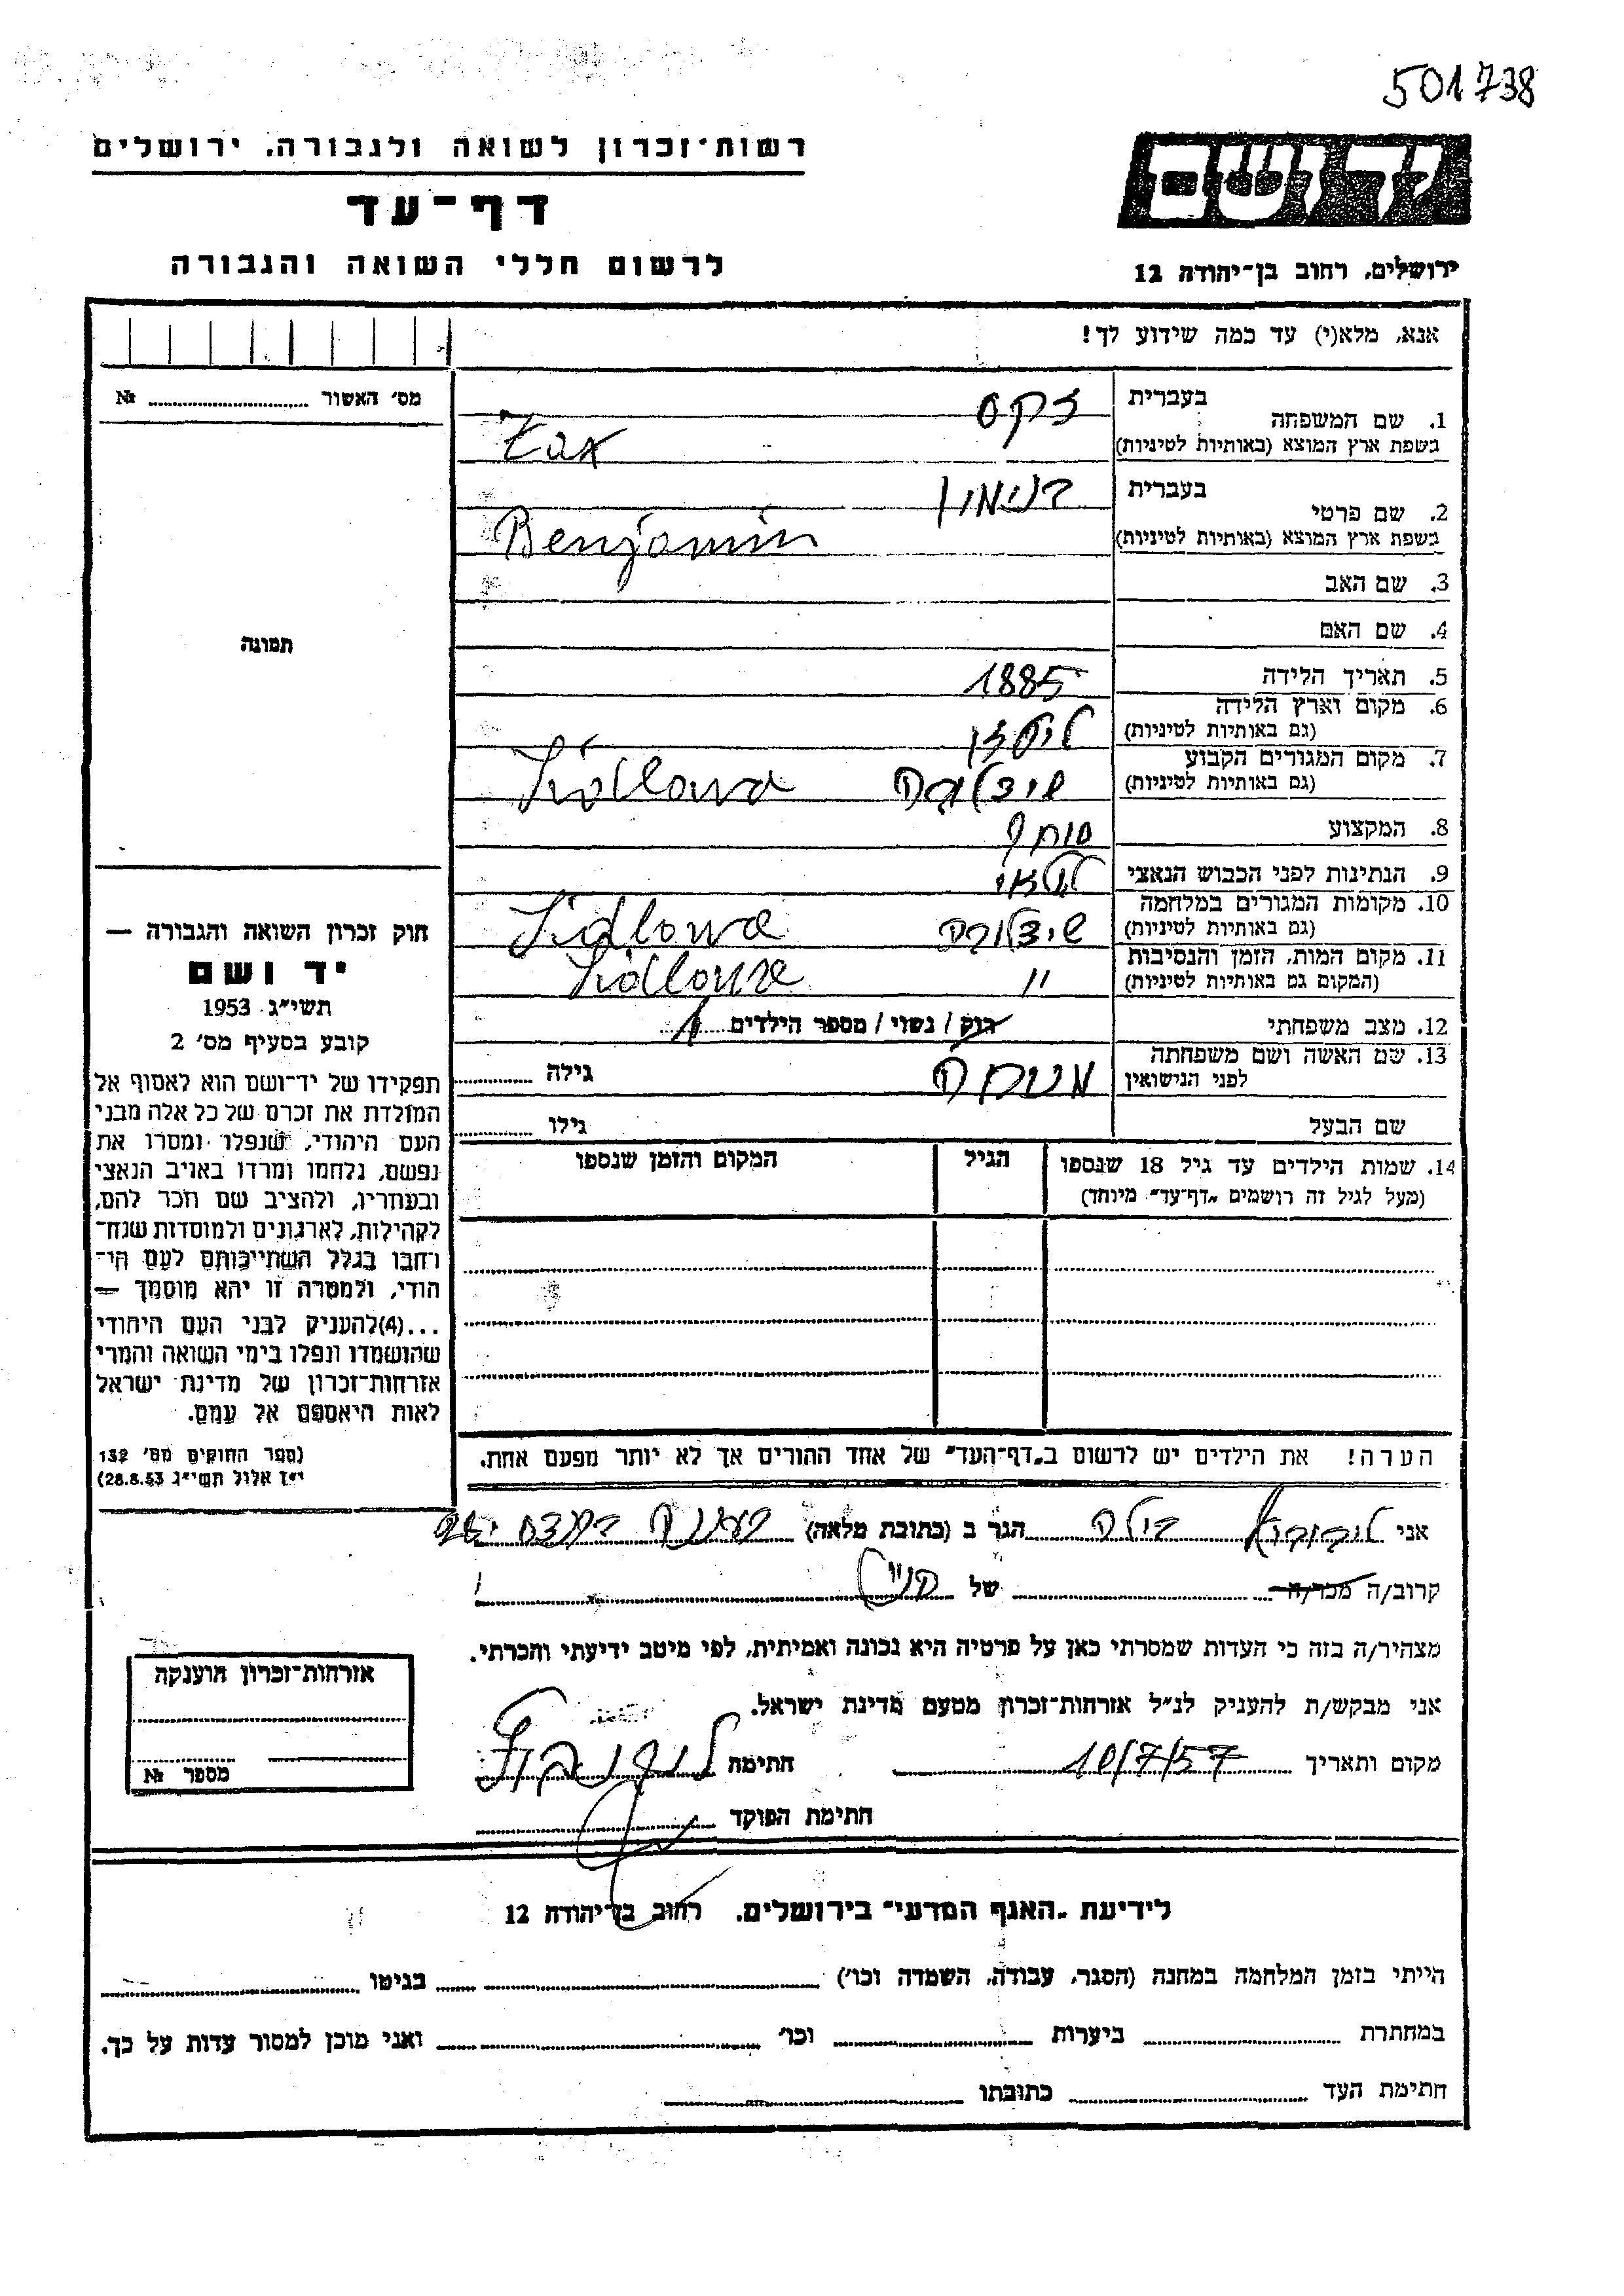 501738
רשות־זכרון לשואה ולגבורה, ירושלים
דף־עד
לרשום חללי השואה והגבורה
יד ושם
ירושלים, רחוב בן־יהודה 12
אנא, מלא(י) עד כמה שידוע לך!
מס׳ האשור № 
תמונה
1. שם המשפחה בעברית זקס
בשפת ארץ המוצא (באותיות לטיניות) Zax
2. שם פרטי בעברית בנימין
בשפת ארץ המוצא (באותיות לטיניות) Benjamin
3. שם האב
4. שם האם
5. תאריך הלידה 1885
6. מקום וארץ הלידה
(גם באותיות לטיניות)
7. מקום המגורים הקבוע
(גם באותיות לטיניות)
8. המקצוע סוחר
9. הנתינות לפני הכבוש הנאצי
10. מקומות המגורים במלחמה
(גם באותיות לטיניות) Sidlowa
11. מקום המות, הזמן והנסיבות
(המקום גם באותיות לטיניות) "
12. מצב משפחתי רוק / נשוי / מספר הילדים 1
13. שם האשה ושם משפחתה
לפני הנישואין גילה
שם הבעל גילו
14. שמות הילדים עד גיל 18 שנספו הגיל המקום והזמן שנספו
(מעל לגיל זה רושמים „דף־עד" מיוחד)
הערה! את הילדים יש לרשום ב„דף־העד" של אחד ההורים אך לא יותר מפעם אחת.
חוק זכרון השואה והגבורה —
יד ושם
תשי"ג 1953
קובע בסעיף מס׳ 2
תפקידו של יד־ושם הוא לאסוף אל
המולדת את זכרם של כל אלה מבני
העם היהודי, שנפלו ומסרו את
נפשם, נלחמו ומרדו באויב הנאצי
ובעוזריו, ולהציב שם וזכר להם,
לקהילות, לארגונים ולמוסדות שנח־
רבו בגלל השתייכותם לעם הי־
הודי, ולמטרה זו יהא מוסמך —
...(4)להעניק לבני העם היהודי
שהושמדו ונפלו בימי השואה והמרי
אזרחות־זכרון של מדינת ישראל
לאות היאספם אל עמם.
(ספר החוקים מס׳ 132
י"ז אלול תשי"ג 28.8.53)
אני בילה הגר ב (כתובת מלאה)
קרוב/ה מכר/ה של הנ"ל
מצהיר/ה בזה כי העדות שמסרתי כאן על פרטיה היא נכונה ואמיתית, לפי מיטב ידיעתי והכרתי.
אני מבקש/ת להעניק לנ"ל אזרחות־זכרון מטעם מדינת ישראל.
מקום ותאריך 10/7/57 חתימה
חתימת הפוקד
אזרחות־זכרון הוענקה
מספר №
לידיעת „האגף המדעי" בירושלים, רחוב בן־יהודה 12
הייתי בזמן המלחמה במחנה (הסגר, עבודה, השמדה וכו׳) בגיטו
במחתרת ביערות וכו׳ ואני מוכן למסור עדות על כך.
חתימת העד כתובתו